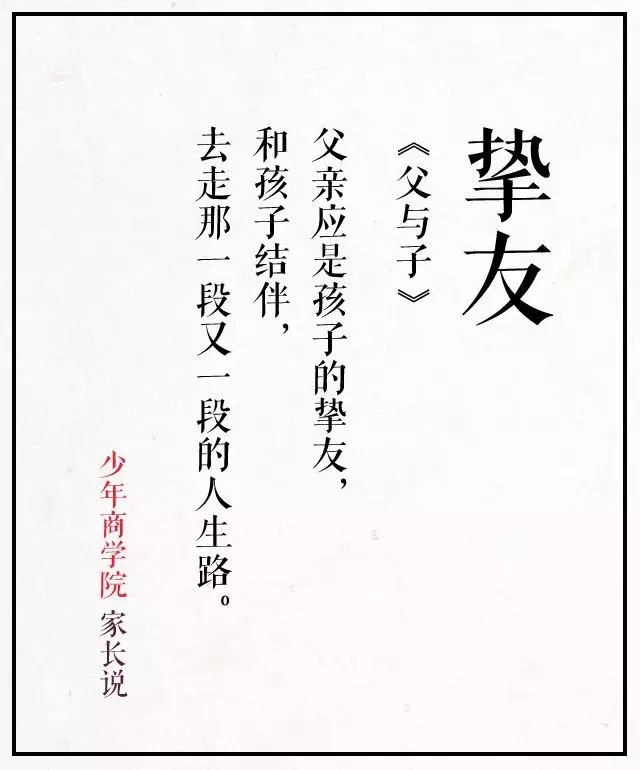 挚友
《父与子》
父亲应是孩子的挚友，
和孩子结伴，
去走那一段又一段的人生路。
少年商学院 家长说